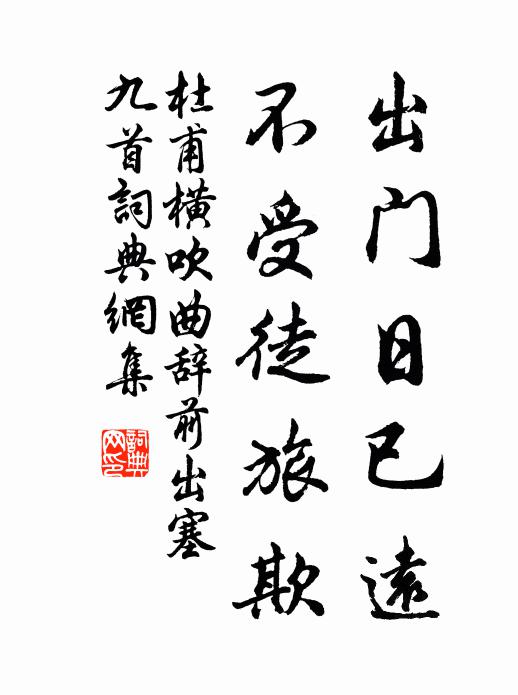 出门日已遠
不受徒旅欺
杜甫横吹曲辞前出塞
九首詞典網集
詞典
网印